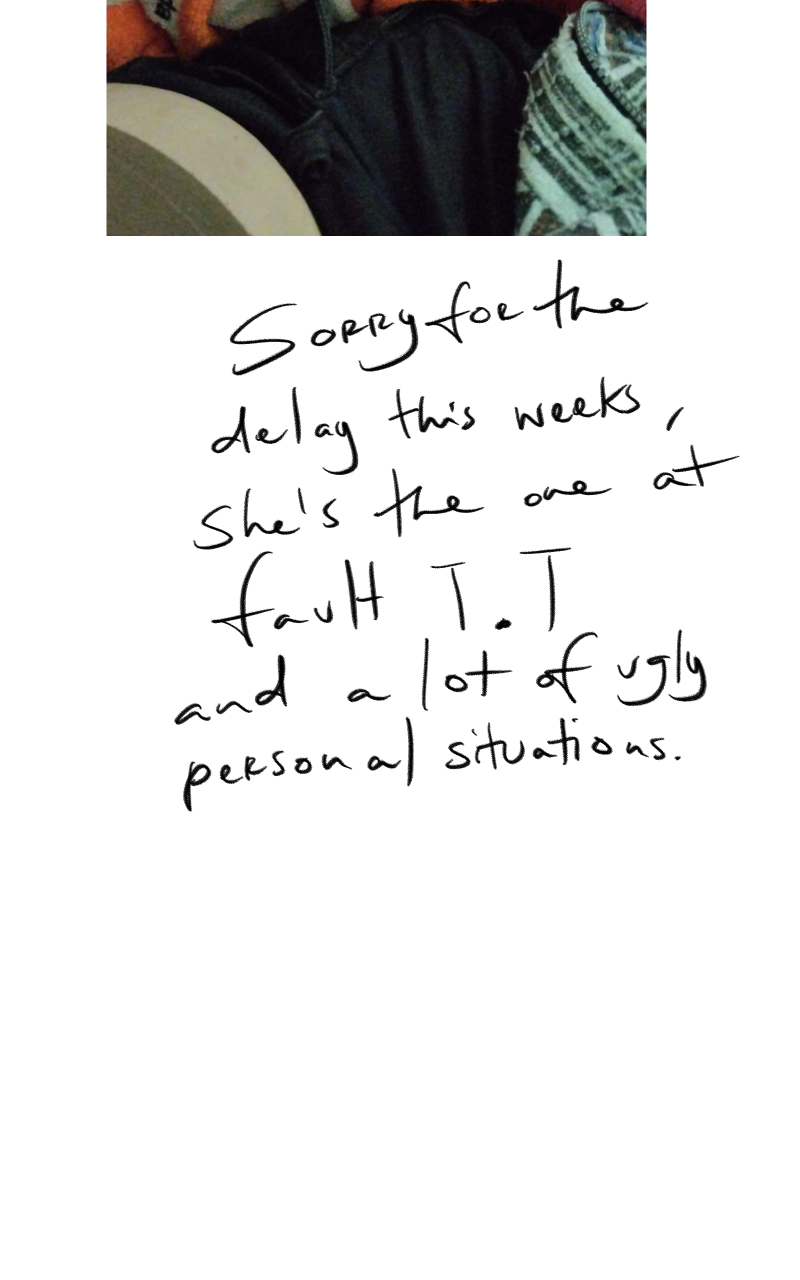 Sorry for the
delay this weeks,
She's the one at
fault T.T
and a lot of ugly
personal situations.